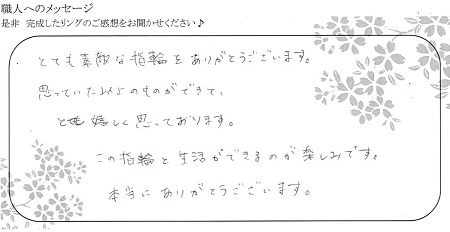 職人へのメッセージ
是非 完成したリングのご感想をお聞かせください♪
とても素敵な指輪をありがとうございます。
思っていた以上のものができて、
とても嬉しく思っております。
この指輪と生活ができるのが楽しみです。
本当にありがとうございます。